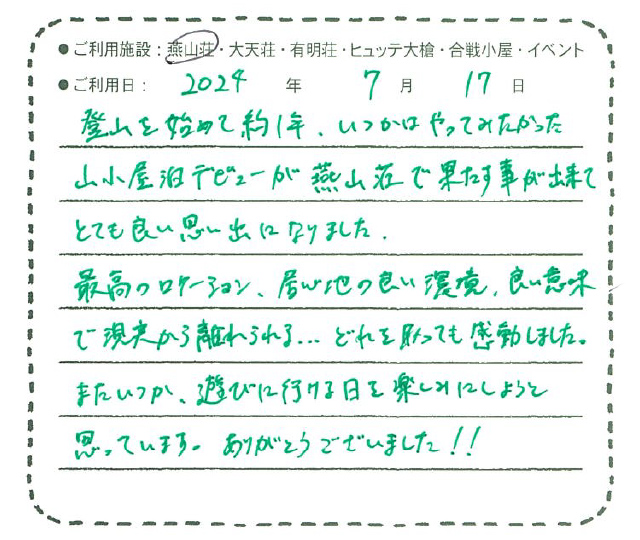 ●ご利用施設：燕山荘・大天荘・有明荘・ヒュッテ大槍・合戦小屋・イベント
●ご利用日： 2024 年 7 月 17 日
登山を始めて約1年、いつかはやってみたかった
山小屋泊デビューが燕山荘で果たす事が出来て
とても良い思い出になりました.
最高のロケーション、居心地の良い環境、良い意味
で現実から離れられる... どれを取っても感動しました。
またいつか、遊びに行ける日を楽しみにしようと
思っています。ありがとうございました!!